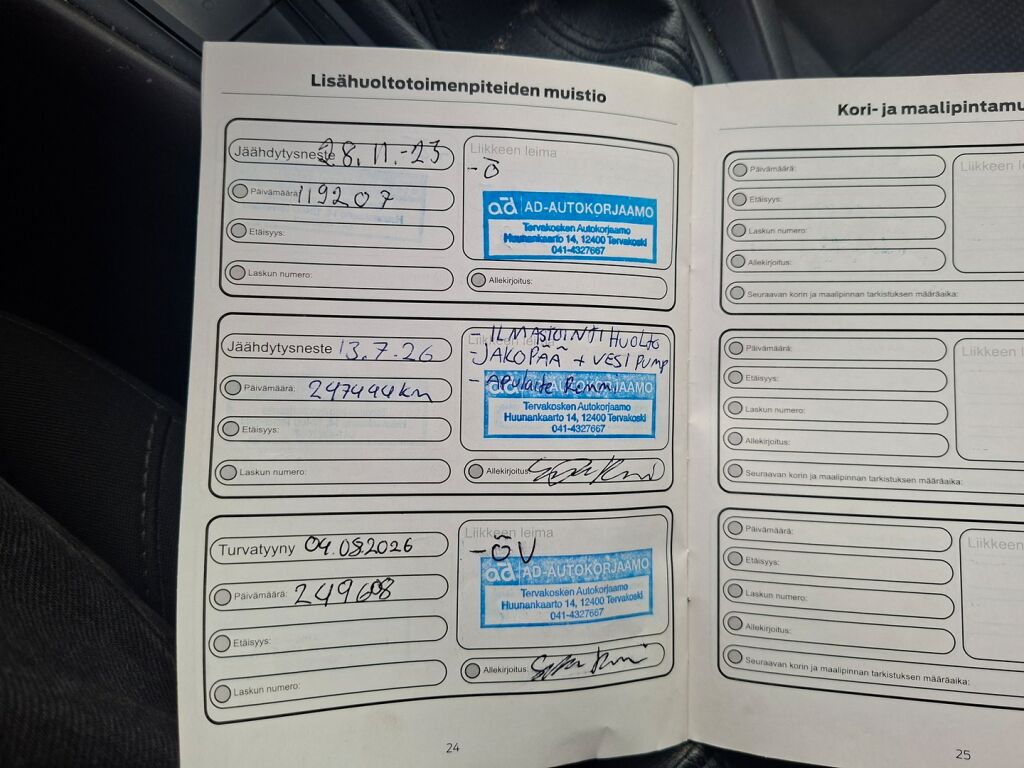 Lisähuoltotoimenpiteiden muistio
Jäähdytysneste 28.11.-23
Päivämäärä: 119207
Etäisyys:
Laskun numero:
Liikkeen leima
- Ö
ad AD-AUTOKORJAAMO
Tervakosken Autokorjaamo
Huunankaarto 14, 12400 Tervakoski
041-4327667
Allekirjoitus:
Jäähdytysneste 13.7.26
Päivämäärä: 247444km
Etäisyys:
Laskun numero:
Liikkeen leima
- ILMASTOINTIHUOLTO
- JAKOPÄÄ + VESI PUMP
- Apulaite
ad AD-AUTOKORJAAMO
Tervakosken Autokorjaamo
Huunankaarto 14, 12400 Tervakoski
041-4327667
Allekirjoitus:
Turvatyyny 04.08.2026
Päivämäärä: 249608
Etäisyys:
Laskun numero:
Liikkeen leima
- ÖV
ad AD-AUTOKORJAAMO
Tervakosken Autokorjaamo
Huunankaarto 14, 12400 Tervakoski
041-4327667
Allekirjoitus:
24
Kori- ja maalipintamu
Päivämäärä:
Etäisyys:
Laskun numero:
Allekirjoitus:
Seuraavan korin ja maalipinnan tarkistuksen määräaika:
Liikkeen leima
Päivämäärä:
Etäisyys:
Laskun numero:
Allekirjoitus:
Seuraavan korin ja maalipinnan tarkistuksen määräaika:
Liikkeen
Päivämäärä:
Etäisyys:
Laskun numero:
Allekirjoitus:
Seuraavan korin ja maalipinnan tarkistuksen määräaika:
Liikkeen
25